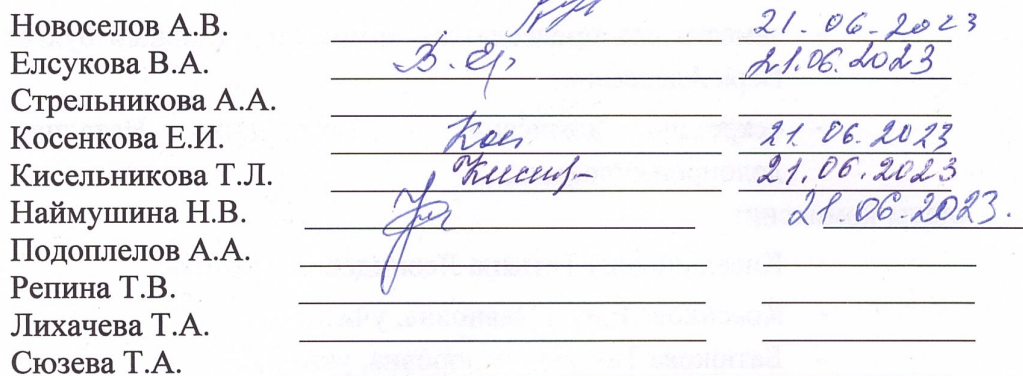 Новоселов А.В. 21.06.2023
Елсукова В.А. 21.06.2023
Стрельникова А.А.
Косенкова Е.И. 21.06.2023
Кисельникова Т.Л. 21.06.2023
Наймушина Н.В. 21.06.2023.
Подоплелов А.А.
Репина Т.В.
Лихачева Т.А.
Сюзева Т.А.